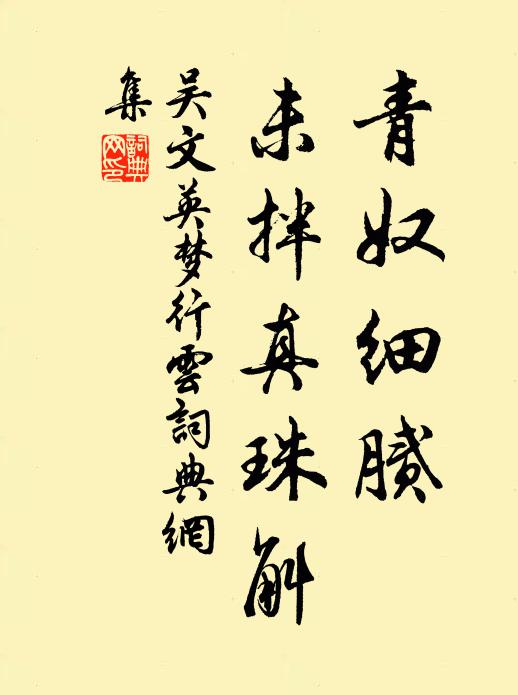 青奴细腻
未拌真珠斛
吴文英梦行雲詞典網
集
詞典網印